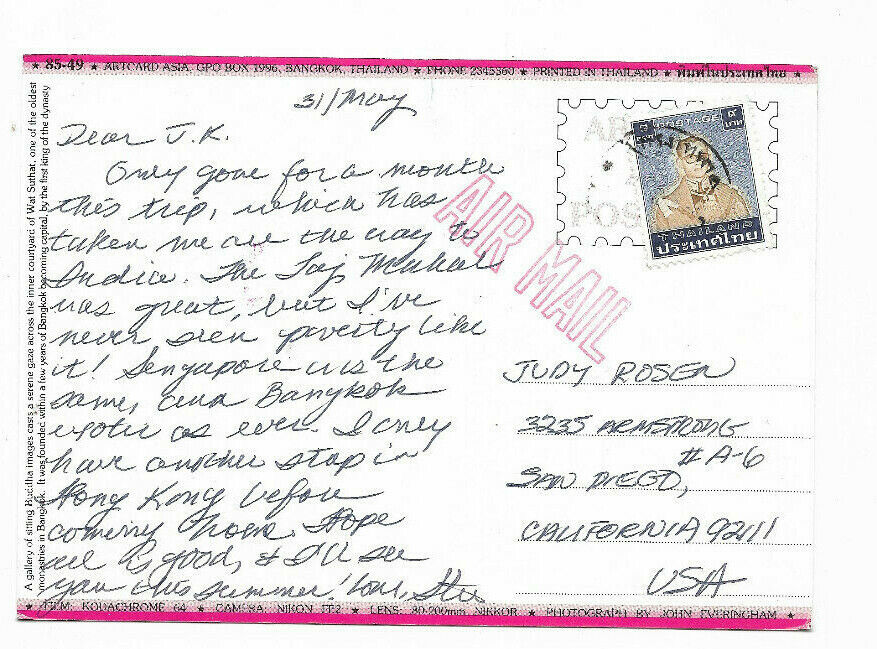 ★ 85-49 ★ ARTCARD ASIA, GPO BOX 1996, BANGKOK, THAILAND ★ PHONE 2345360 ★ PRINTED IN THAILAND ★ พิมพ์ในประเทศไทย ★
A gallery of sitting Buddha images casts a serene gaze across the inner courtyard of Wat Suthat, one of the oldest
monasteries in Bangkok. It was founded within a few years of Bangkok becoming capital, by the first king of the dynasty
31/May
Dear J.K.
Only gone for a month
this trip, which has
taken me all the way to
India. The Taj Mahal
was great, but I've
never seen poverty like
it! Singapore was the
same, and Bangkok
exotic as ever. I only
have another stop in
Hong Kong before
coming home. Hope
all is good, & I'll see
you this summer! Love,
AIR MAIL
POSTAGE
๕ บาท
THAILAND
ประเทศไทย
JUDY ROSEN
3235 ARMSTRONG
# A-6
SAN DIEGO,
CALIFORNIA 92111
USA
★ FILM: KODACHROME 64 ★ CAMERA: NIKON FE2 ★ LENS: 80-200mm NIKKOR ★ PHOTOGRAPH BY JOHN EVERINGHAM ★